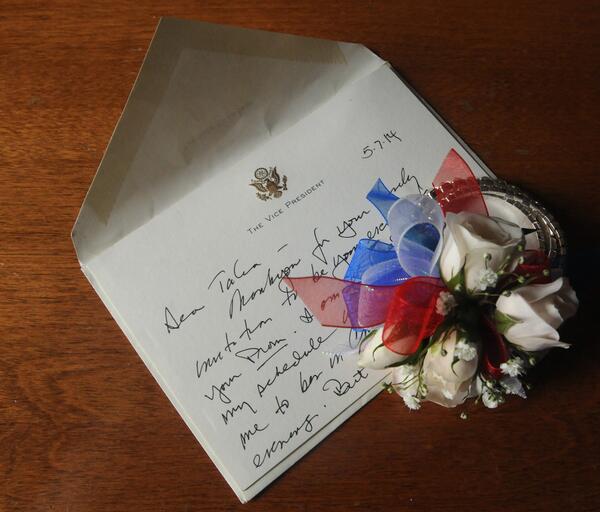 5.7.14
THE VICE PRESIDENT
Dear Talia –
Thank you for your lovely
invitation to be your
your Prom. I am
my schedule
me to be in
evening. But